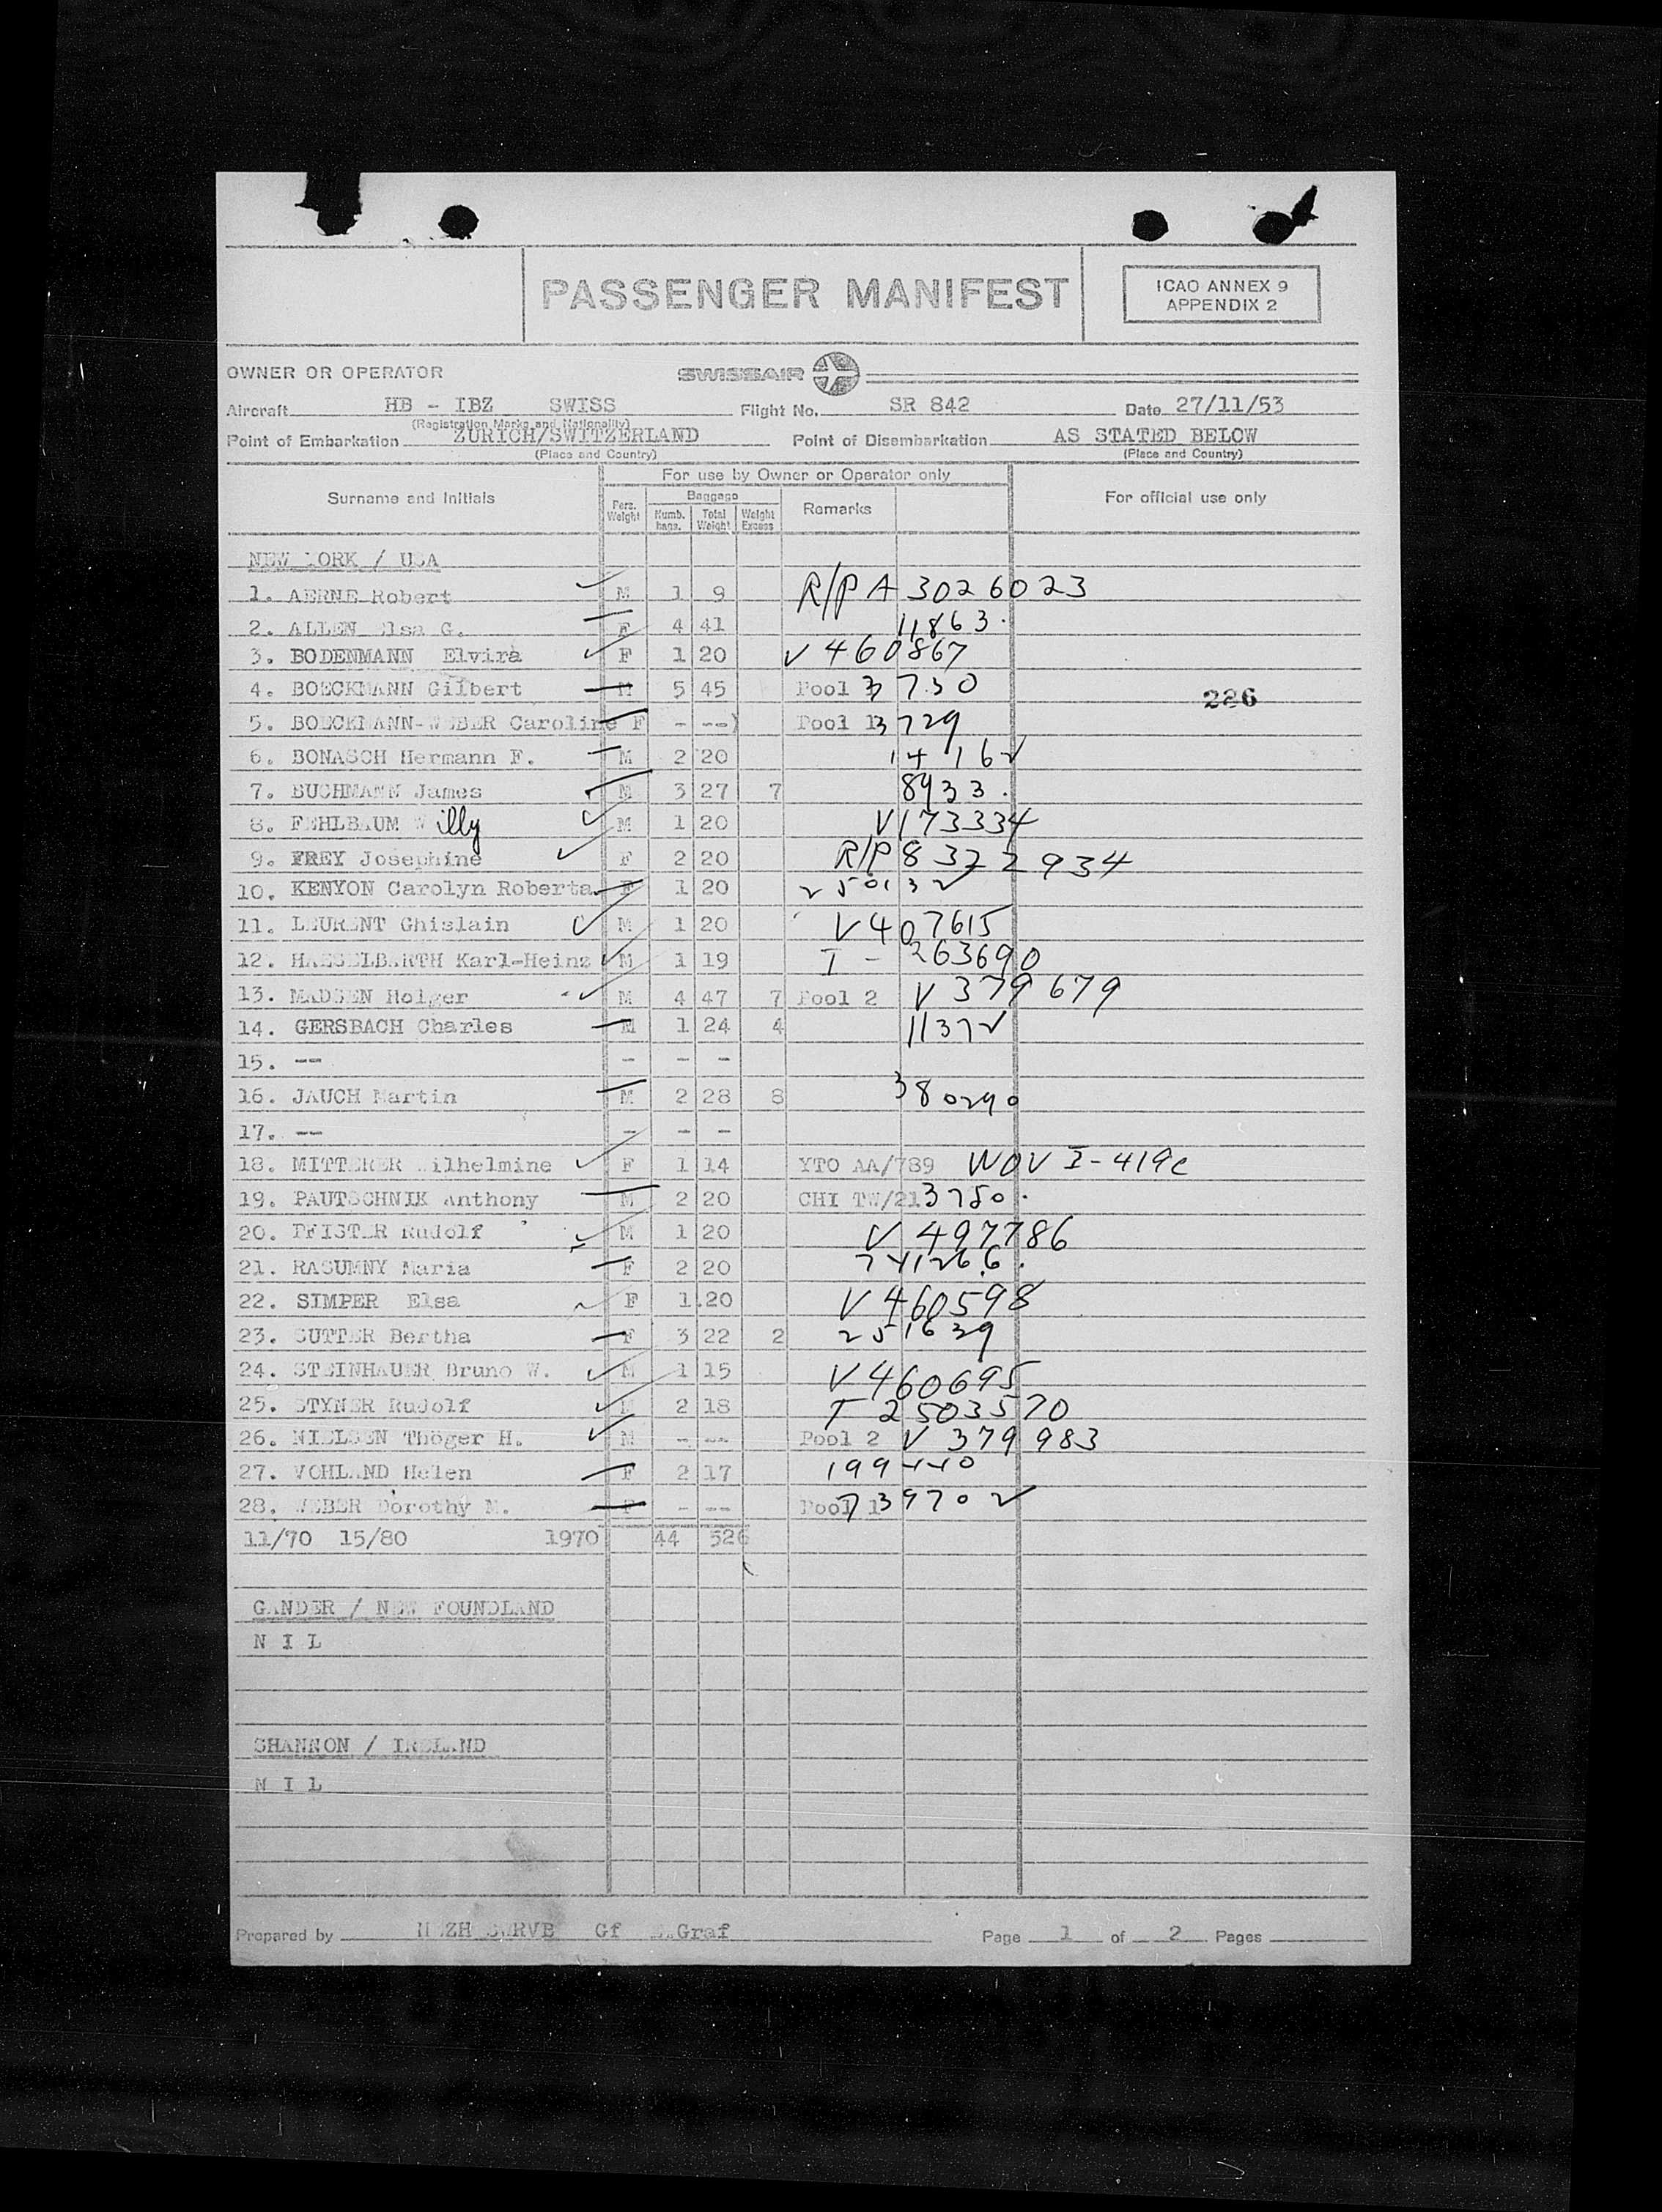 PASSENGER MANIFEST
ICAO ANNEX 9
APPENDIX 2
OWNER OR OPERATOR SWISSAIR
Aircraft HB - IBZ SWISS Flight No. SR 842 Date 27/11/53
(Registration Marks and Nationality)
Point of Embarkation ZURICH/SWITZERLAND Point of Disembarkation AS STATED BELOW
(Place and Country) (Place and Country)
For use by Owner or Operator only
Surname and Initials Pers. Weight Baggage Numb. bags. Total Weight Weight Excess Remarks For official use only
NEW YORK / USA
1. AERNE Robert M 1 9 R/P A 3026023
2. ALLEN Elsa G. F 4 41 11863.
3. BODENMANN Elvira F 1 20 V 460867
4. BOECKMANN Gilbert M 5 45 Pool 3730
286
5. BOECKMANN-WEBER Caroline F - ---) Pool 1 3729
6. BONASCH Hermann F. M 2 20 14162
7. BUCHMANN James M 3 27 7 8933.
8. FEHLBAUM Willy M 1 20 V173334
9. FREY Josephine F 2 20 R/P 8322934
10. KENYON Carolyn Roberta F 1 20 250132
11. LEURENT Ghislain M 1 20 V407615
12. HAESELBARTH Karl-Heinz M 1 19 I - 263690
13. MADSEN Holger M 4 47 7 Pool 2 V 379679
14. GERSBACH Charles M 1 24 4 11372
15. -- - - -
16. JAUCH Martin M 2 28 8 380290
17. -- - - -
18. MITTERER Wilhelmine F 1 14 YTO AA/789 WOV I-419c
19. PAUTSCHNIK Anthony M 2 20 CHI TW/21 3780.
20. PFISTER Rudolf M 1 20 V 497786
21. RASUMNY Maria F 2 20
22. SIMPER Elsa F 1.20 V 460598
23. SUTTER Bertha F 3 22 2 251639
24. STEINHAUER Bruno W. M 1 15 V 460695
25. STYNER Rudolf M 2 18 T 2503570
26. NIELSEN Thöger H. M - --- Pool 2 V 379983
27. VOHLAND Helen F 2 17
28. WEBER Dorothy M. F - --- Pool 1 739702
11/70 15/80 1970 44 526
GANDER / NEW FOUNDLAND
N I L
SHANNON / IRELAND
N I L
Prepared by Gf Graf Page 1 of 2 Pages